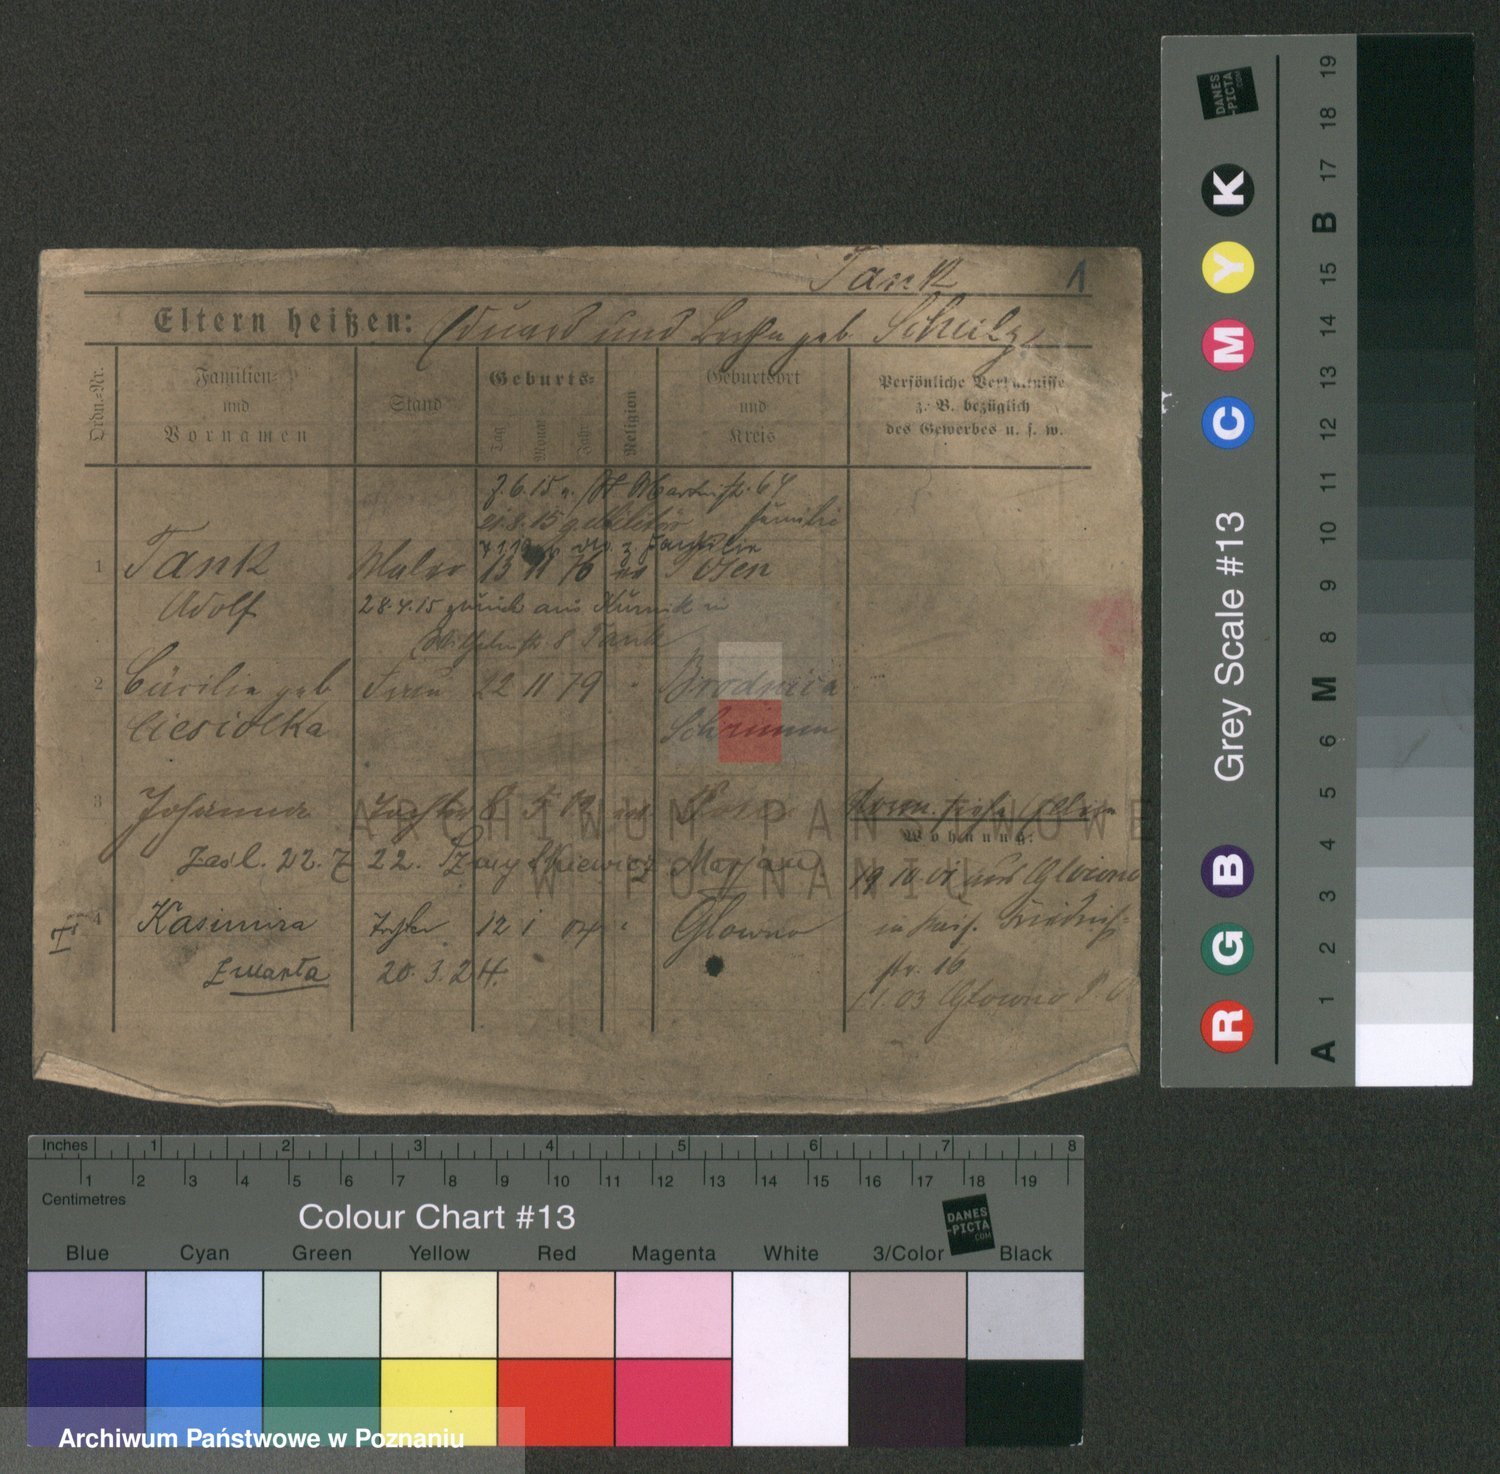 Tank 1
Eltern heißen: Eduard und geb. Scheilz
Ordn.-Nr.
Familien-
und
Vornamen
Stand
Geburts-
Tag
Monat
Jahr
Religion
Geburtsort
und
Kreis
Persönliche Verhältnisse
z. B. bezüglich
des Gewerbes u. s. w.
7.6.15 Martinstr. 64
21.8.15 z. Militär Familie
z. Familie
1 Tank Maler 13 11 76 Posen
Adolf 28.4.15 zurück aus Kurnik in
Wilhelmstr. 8 Tank
2 Cäcilie geb Frau 22 11 79 Brodnica
Ciesiolka Schrimm
3 Johanna Tochter 8 5 02 Posen
Wohnung:
zaśl. 22. 7 22. Marjan
19 10 01 aus Glowno
4 Kasimira Tochter 12 1 04 Glowno
in Friedrich-
str. 16
Zmarła 20. 3. 24.
1.1.03 Glowno P. O
ARCHIWUM PAŃSTWOWE
W POZNANIU
DANES
-PICTA
.COM
K
Y
M
C
B
G
R
Grey Scale #13
A 1 2 3 4 5 6 M 8 9 10 11 12 13 14 15 B 17 18 19
Inches 1 2 3 4 5 6 7 8
1 2 3 4 5 6 7 8 9 10 11 12 13 14 15 16 17 18 19
Centimetres
Colour Chart #13
DANES
-PICTA
.COM
Blue Cyan Green Yellow Red Magenta White 3/Color Black
Archiwum Państwowe w Poznaniu